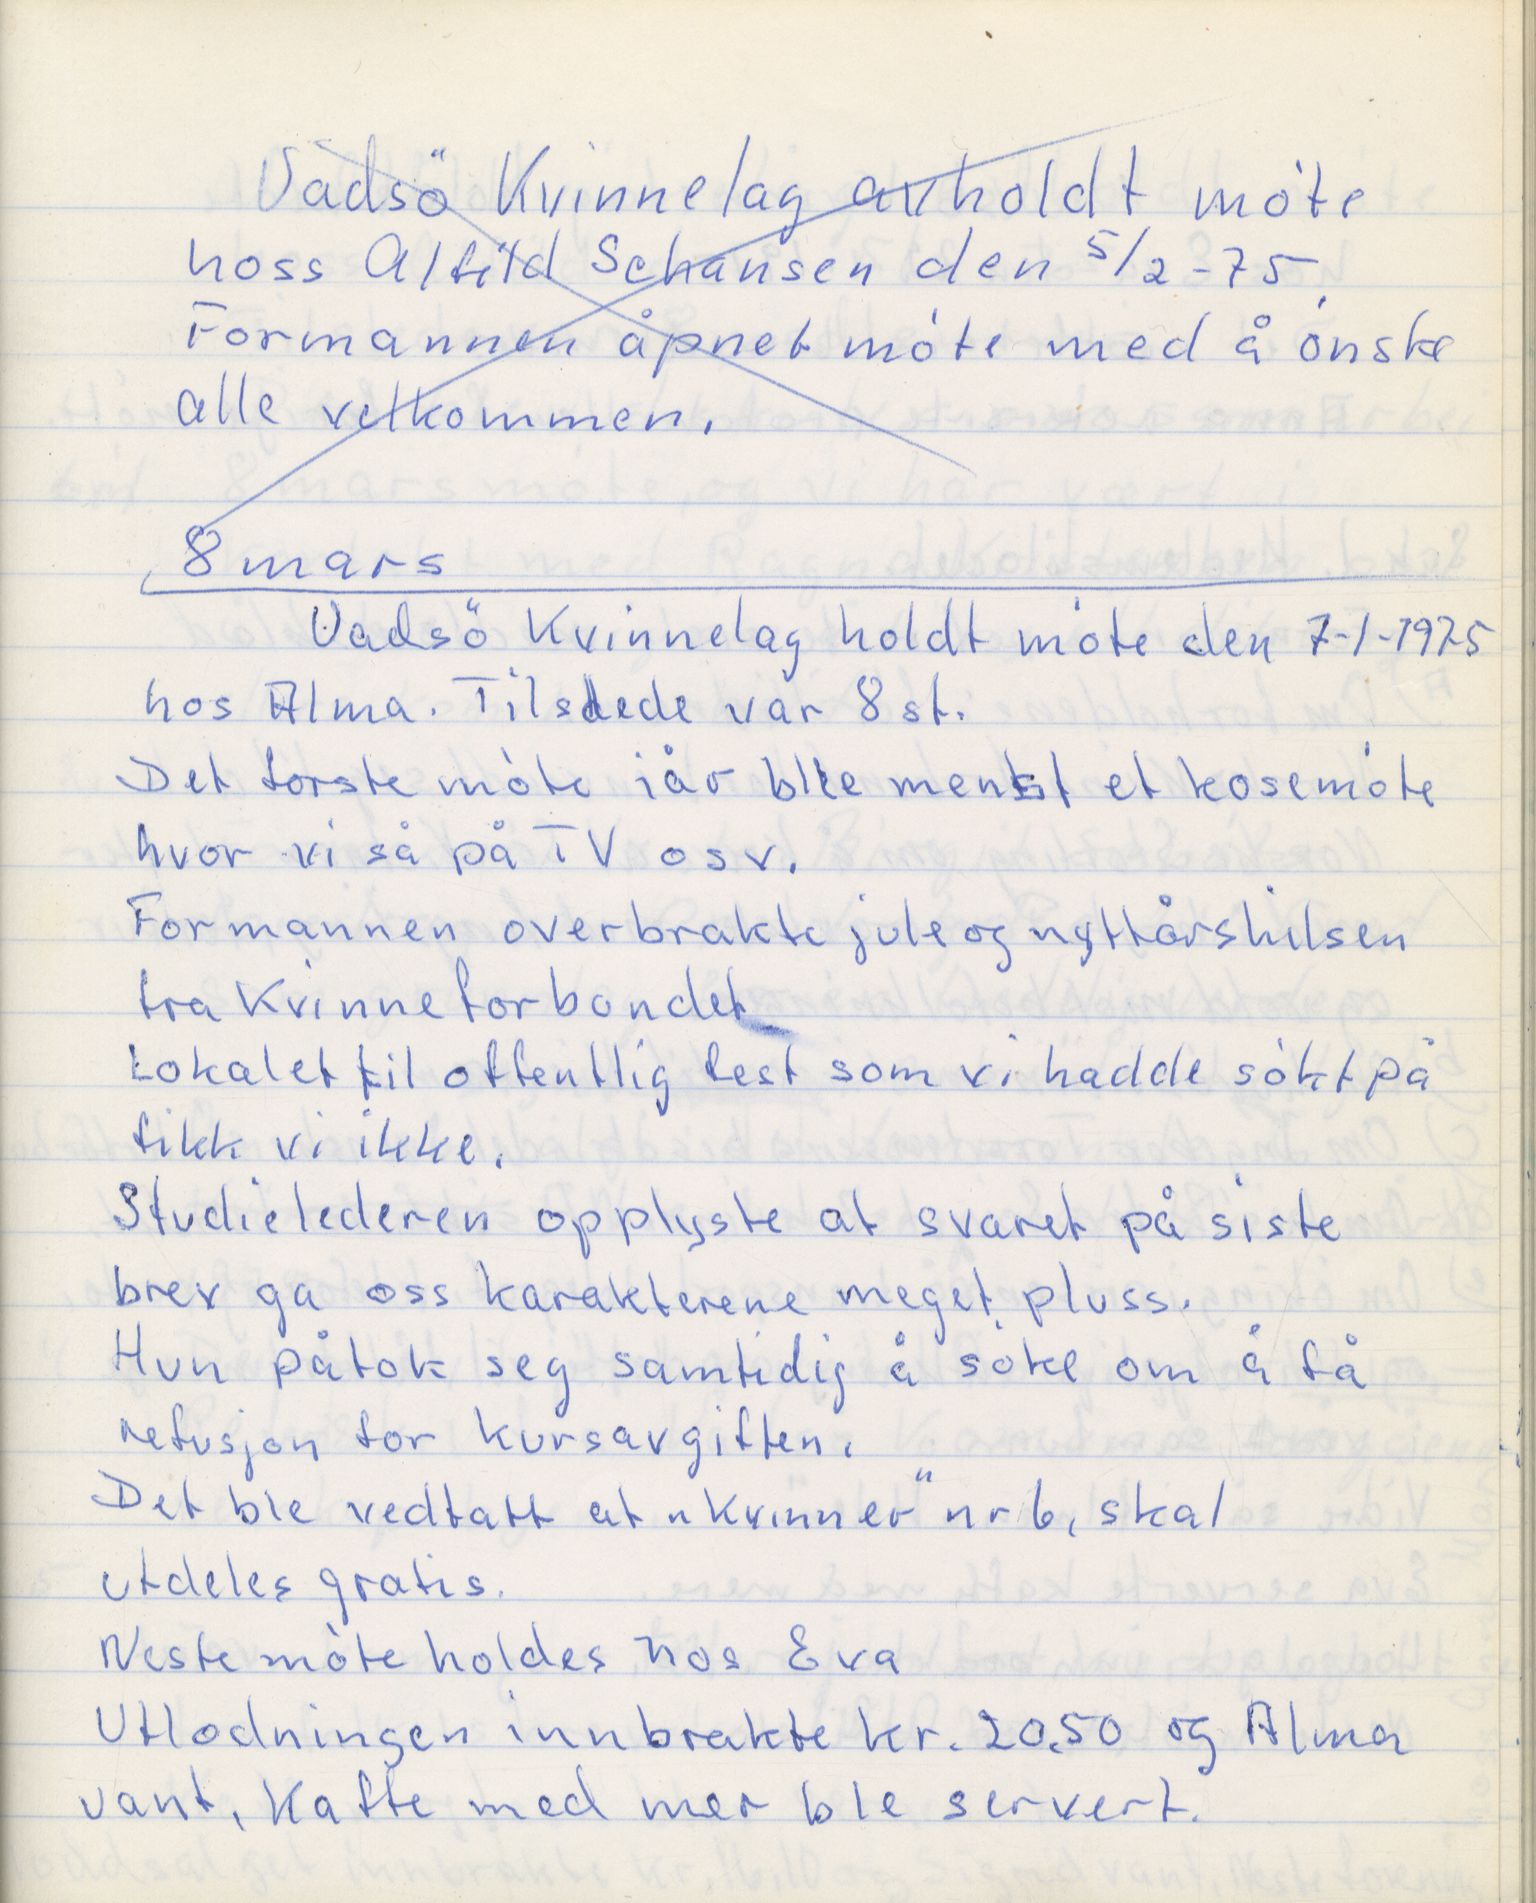 Vadsö Kvinnelag avholdt möte
hoss Alfild Schansen den 5/2-75.
Formannen åpnet möte med å önske
alle velkommen.
8 mars
Vadsö Kvinnelag holdt möte den 7-1-1975
hos Alma. Tilstede var 8 st.
Det förste möte iår ble menst et kosemöte
hvor vi så på TV osv.
Formannen overbrakte jule og nyttårshilsen
fra Kvinneforbundet
Lokalet til offentlig fest som vi hadde sökt på
fikk vi ikke.
Studielederen opplyste at svaret på siste
brev ga oss karakterene meget pluss.
Hun påtok seg samtidig å söke om å få
refusjon for kursavgiften.
Det ble vedtatt at "Kvinner" nr 6, skal
utdeles gratis.
Neste möte holdes hos Eva
Utlodningen innbrakte kr. 20.50 og Alma
vant, Kaffe med mer ble servert.